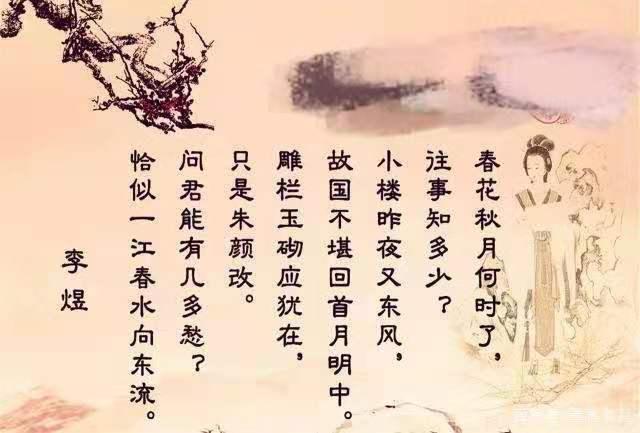 春花秋月何时了，
往事知多少？
小楼昨夜又东风，
故国不堪回首月明中。
雕栏玉砌应犹在，
只是朱颜改。
问君能有几多愁？
恰似一江春水向东流。
李煜